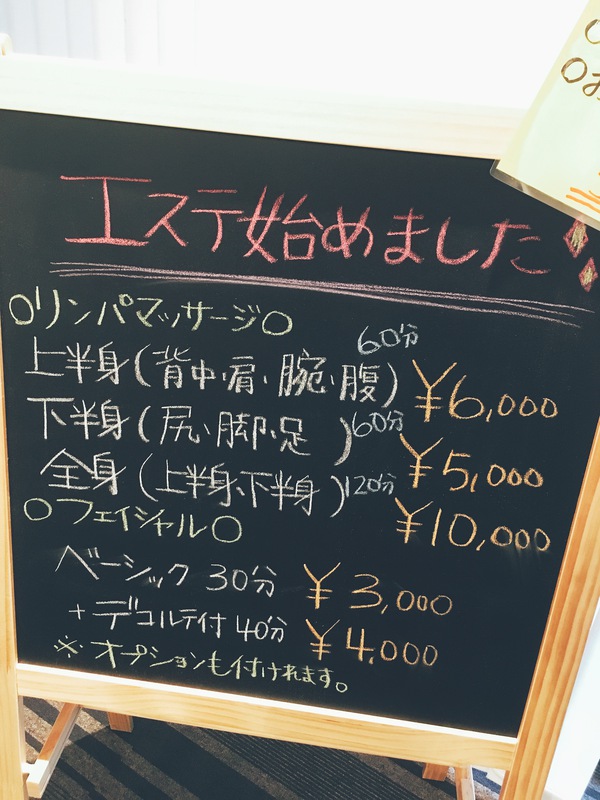 エステ始めました
○リンパマッサージ○
上半身(背中・肩・腕・腹) 60分 ¥6,000
下半身(尻・脚・足) 60分 ¥5,000
全身(上半身、下半身) 120分 ¥10,000
○フェイシャル○
ベーシック 30分 ¥3,000
+デコルテ付 40分 ¥4,000
※オプションも付けれます。